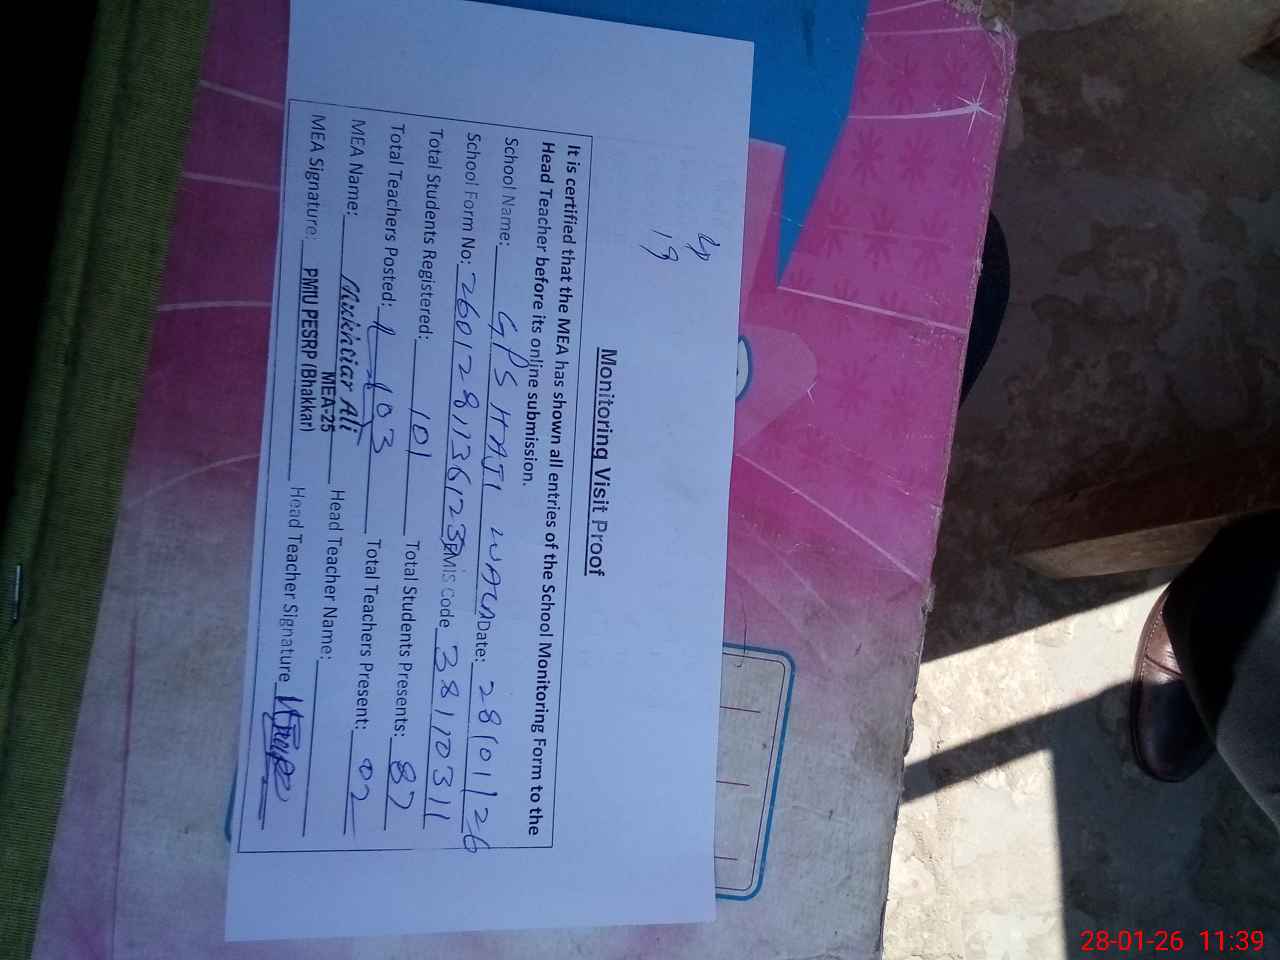 19
Monitoring Visit Proof
It is certified that the MEA has shown all entries of the School Monitoring Form to the
Head Teacher before its online submission.
School Name: GPS HAJI WALA Date: 28/01/26
School Form No: 2601281136123 EMIS Code 38110311
Total Students Registered: 101 Total Students Presents: 87
Total Teachers Posted: 03 Total Teachers Present: 02
MEA Name: Mukhtiar Ali Head Teacher Name:
MEA-25
MEA Signature: PMIU PESRP (Bhakkar) Head Teacher Signature
28-01-26 11:39